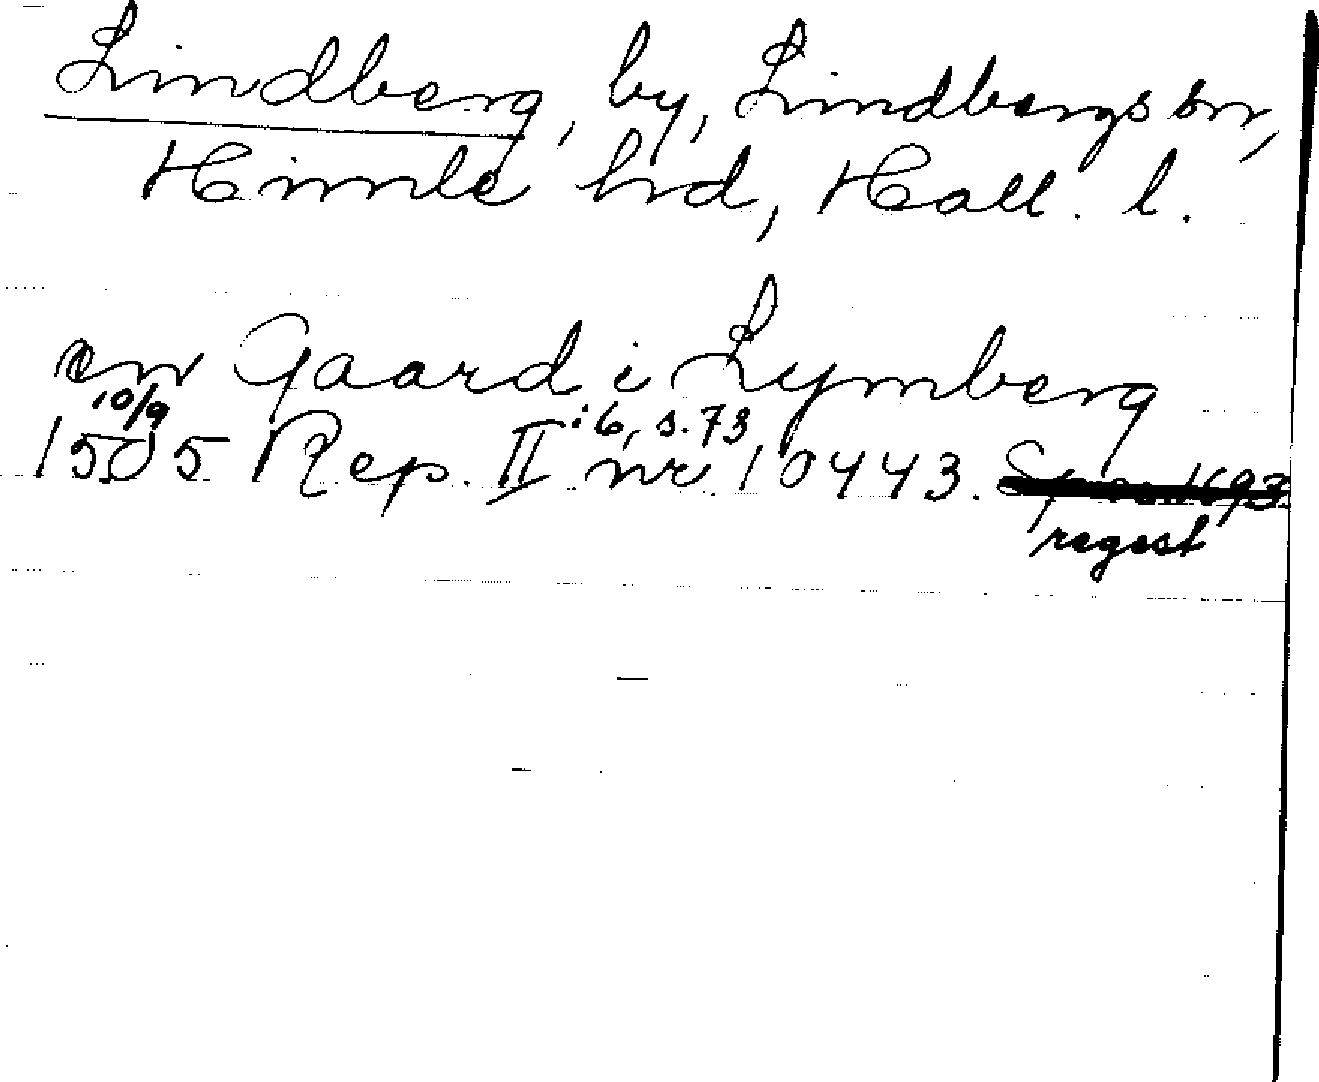 Lindberg, by, Lindbergs sn,
Himle hd, Hall. l.
en Gaard i Lymberg
10/9
1505 Rep. II :6, s. 73 nr 10443.
regest